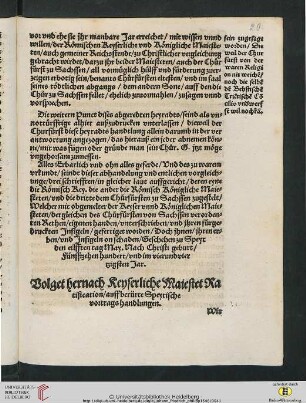 vor vnd ehe sie jhr manbare Jar erreichet / mit wissen vnnd
willen / der Römischen Keyserliche vnd Königliche Maieste-
ten / auch gemeiner Reichsstende / zu Christlicher vergleichung
gebracht wirdet / darzu jhr beider Maiesteten / auch der Chur
fürst zu Sachssen / all vormöglich hülff vnd fürderung
erbotig sein / benants Churfürsten
seines tödtlichen abgangs / dem andern Sone / auff den die
Chur zu Sachssen fellet / ehelich zuuormahlen / zusagen vnnd
vorsprochen.
Die weitern Punct dises abgeredten heyrabts / seind als vn-
nottürfftige alhier außzudrucken vnuerlassen / dieweil der
Churfürst diese heyrabts handlung allein darumb in der ver-
antwortung angezogen / das hierauß jeder abnemen kön-
ne / mit was fugen oder gründe man sein Chür. G. jtzt möge
vngehorsam zumessen.
Alles Erbarlich vnd ohn alles geferde / Vnd des zu waren
vrkunde / seinde dieser abhandlung vnd entlichen vorgleich-
unge / drei schrifften in gleicher laut auffgericht / daren eyne
die Römisch Key. die ander die Römisch Königliche Maie-
stett / vnd die dritte dem Churfürsten zu Sachssen zugestelt /
Welcher mit obgemelter der Keyser vnnd Königlichen Maie
steten / dergleichen des Churfürsten von Sachssen verordan-
ten Rethen / eigenen handen / vnterschrieben vnd jhren fürge
druckten Insigeln / gefertiget worden / Doch jhnen / jhren er-
ben / vnd Insigeln on schaden / Geschehen zu Speyr
den eilfften tag May. Nach Christi geburt /
Fünffzehen hundert / vnd im vierundvier
tzigsten Jar.
Volget hernach Keyserliche Maiestet Ra
tification / auff berürte Speyrische
vortrags handlungen.
Wir
sein zugefügt
worden / Die
weil der Chur
fürst von der
waren Religi
on nit weicht /